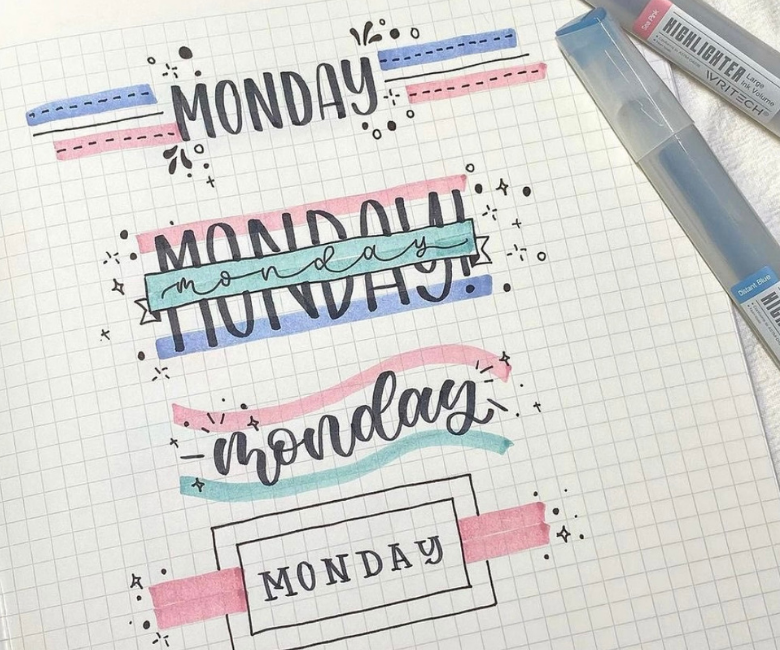 MONDAY
MONDAY!
monday
monday
MONDAY
Sea Pink
HIGHLIGHTER
Large
Ink Volume
WRITECH
Distant Blue